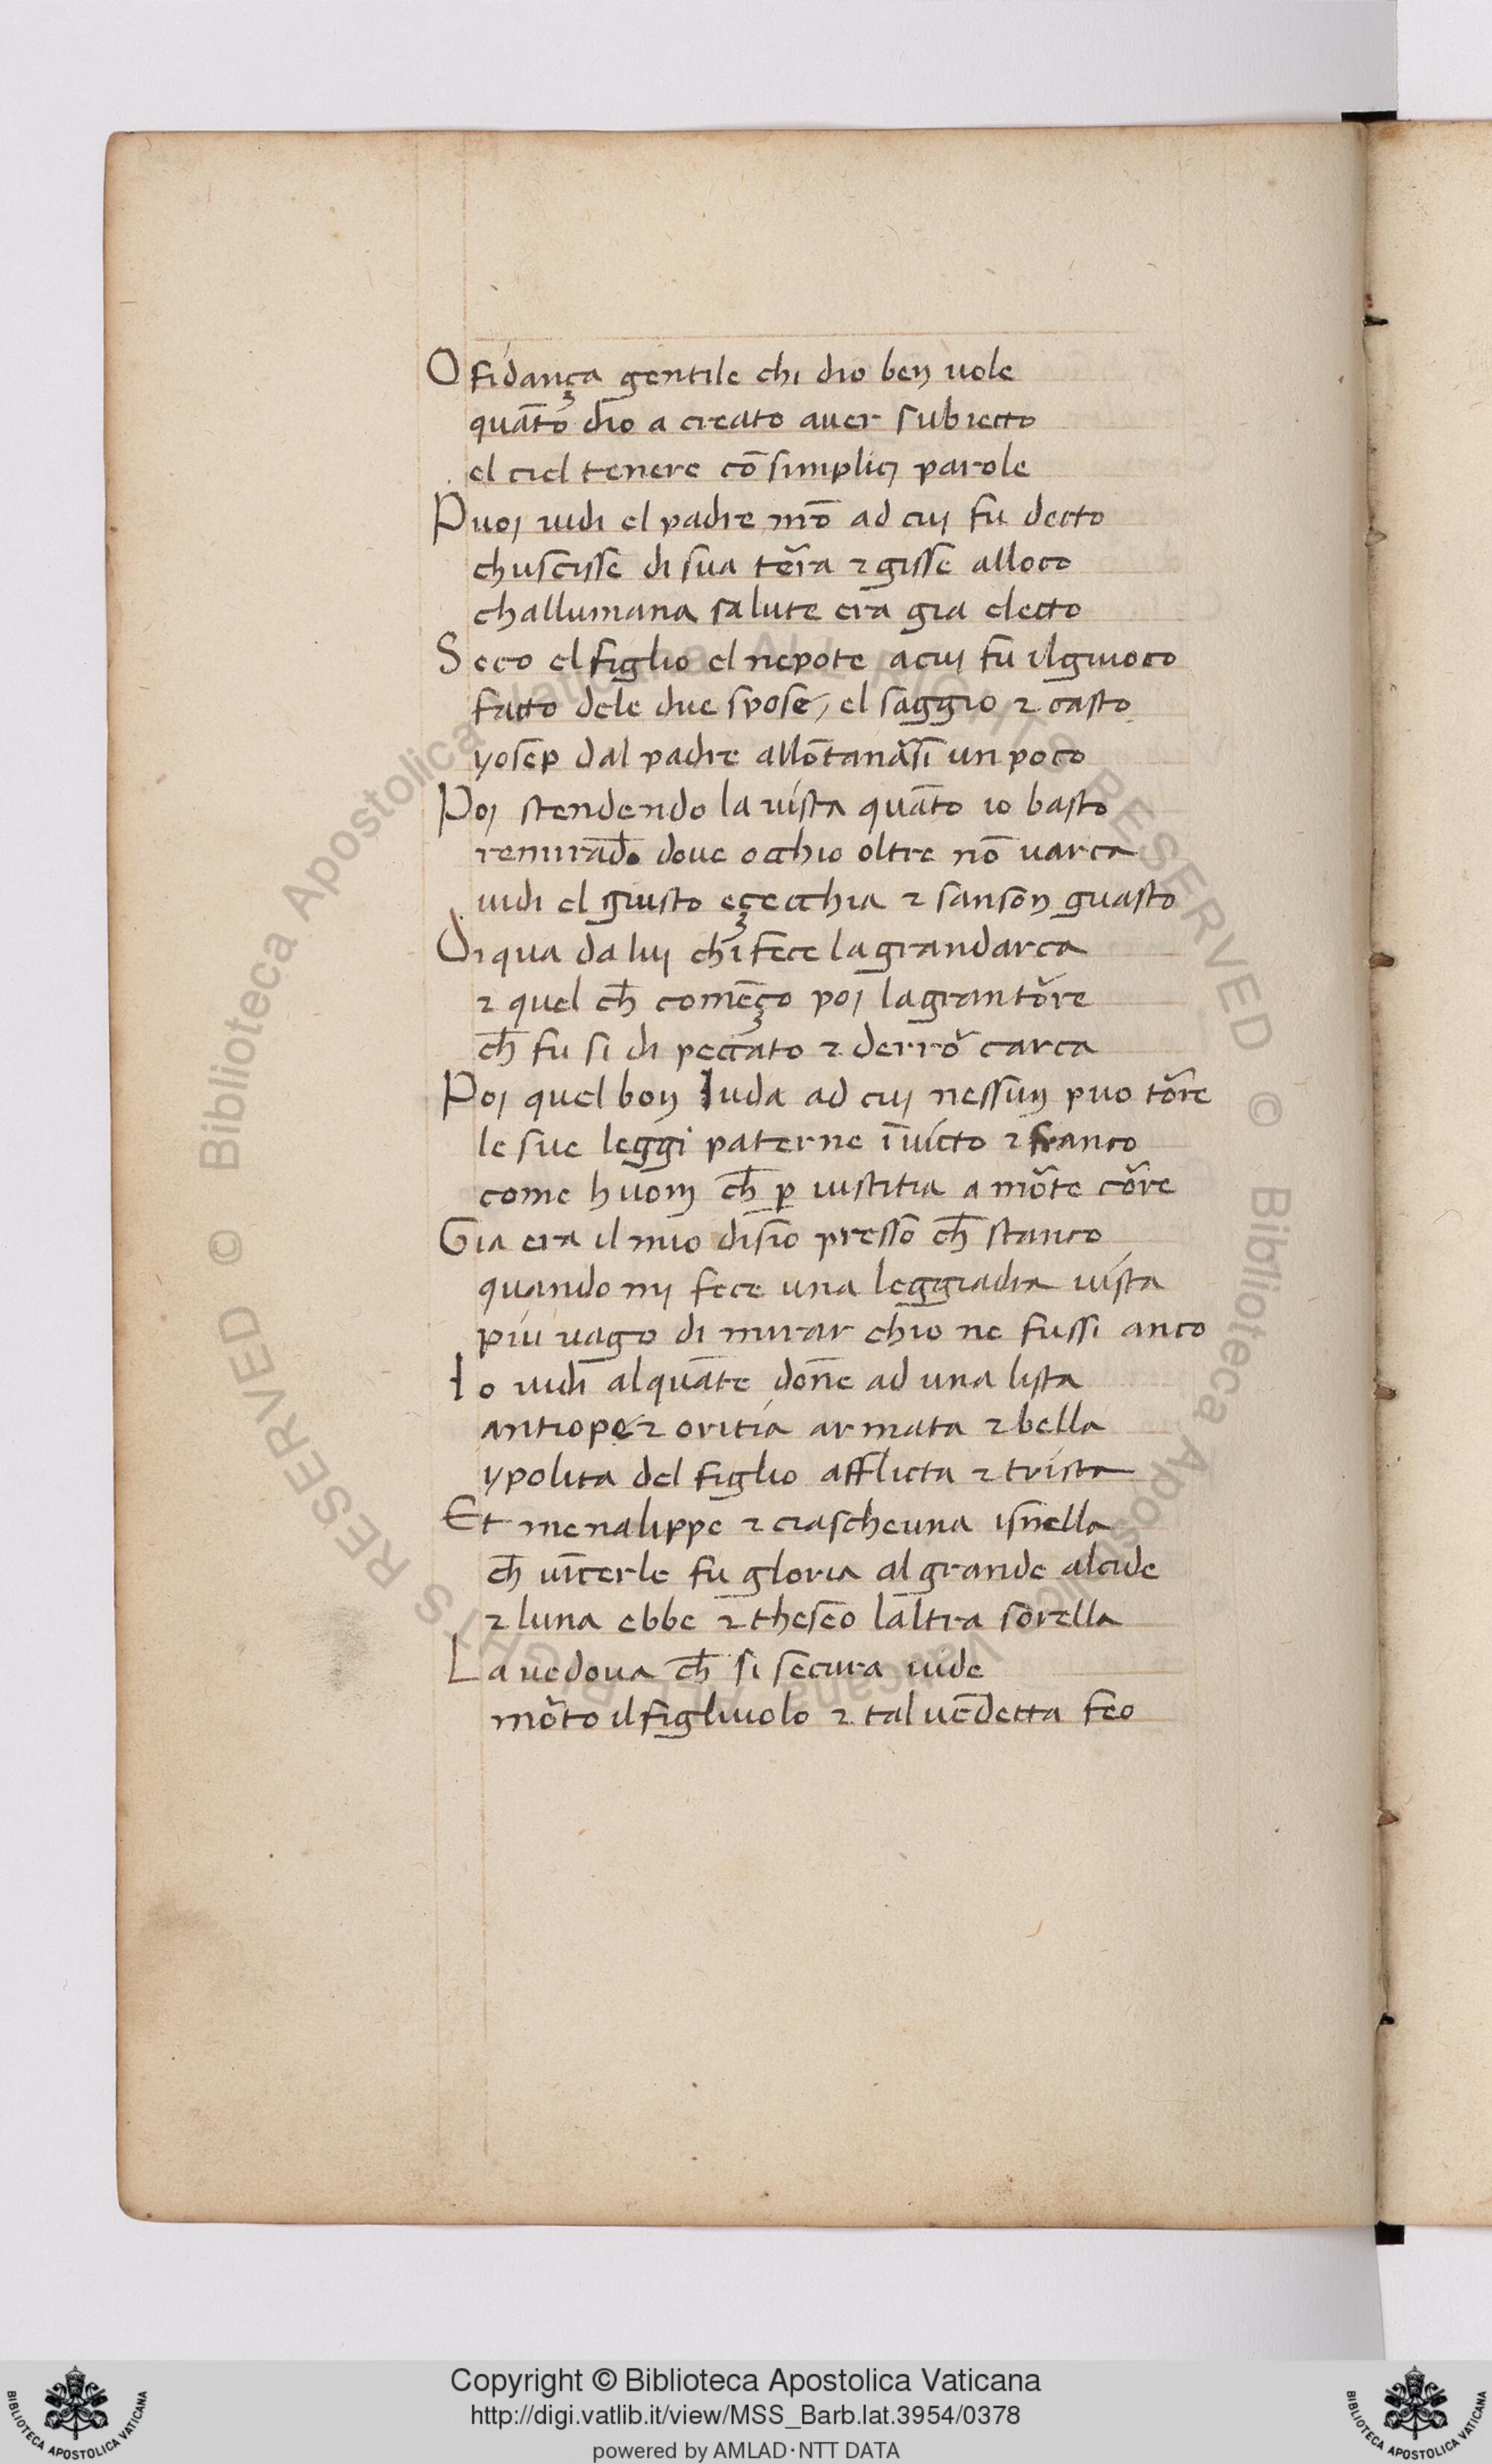 O fidança gentile chi dio ben uole
quāto dio a creato auer subiecto
el ciel tenere cō simplicj parole
Puoj uidi el padre nr̄o ad cuj fu decto
chuscisse di sua ter̄a ⁊ gisse alloco
challumana salute era gia electo
Seco el figlio el nepote acuj fu il giuoco
facto dele due spose / el saggio ⁊ casto
yosep dal padre allōtanar̄si un poco
Poj stendendo la uista quāto io basto
remirādo doue occhio oltre nō uarca
uidi el giusto eçecchia ⁊ sanson guasto
Di qua da luj chi fece lagrandarca
⁊ quel ch̄ comēço poj lagran tor̄e
ch̄ fu si di peccato ⁊ derror̄ carca
Poj quel bon Iuda ad cuj nessun puo tor̄e
le sue leggi paterne īuicto ⁊ franco
come huom ch̄ p̱ iustitia a mor̄te cor̄e
Gia era il mio disio presso ch̄ stanco
quando mj fece una leggiadra uista
piu uago di mirar chio ne fussi anco
Io uidi alquāte donē ad una lista
antiope ⁊ oritia armata ⁊ bella
ypolita del figlio afflicta ⁊ trista
Et menalippe ⁊ ciascheuna isnella
ch̄ uīcerle fu gloria al grande alcide
⁊ luna ebbe ⁊ theseo laltra sorella
La uedoua ch̄ si secura uide
mor̄to il figliuolo ⁊ tal uēdetta feo
Copyright © Biblioteca Apostolica Vaticana
http://digi.vatlib.it/view/MSS_Barb.lat.3954/0378
powered by AMLAD·NTT DATA